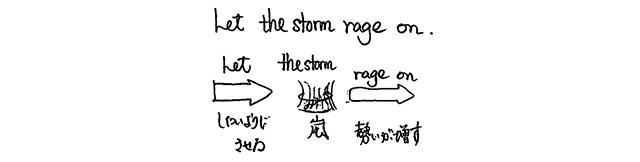 Let the storm rage on.
Let the storm rage on
したいように 嵐 勢いが増す
させる